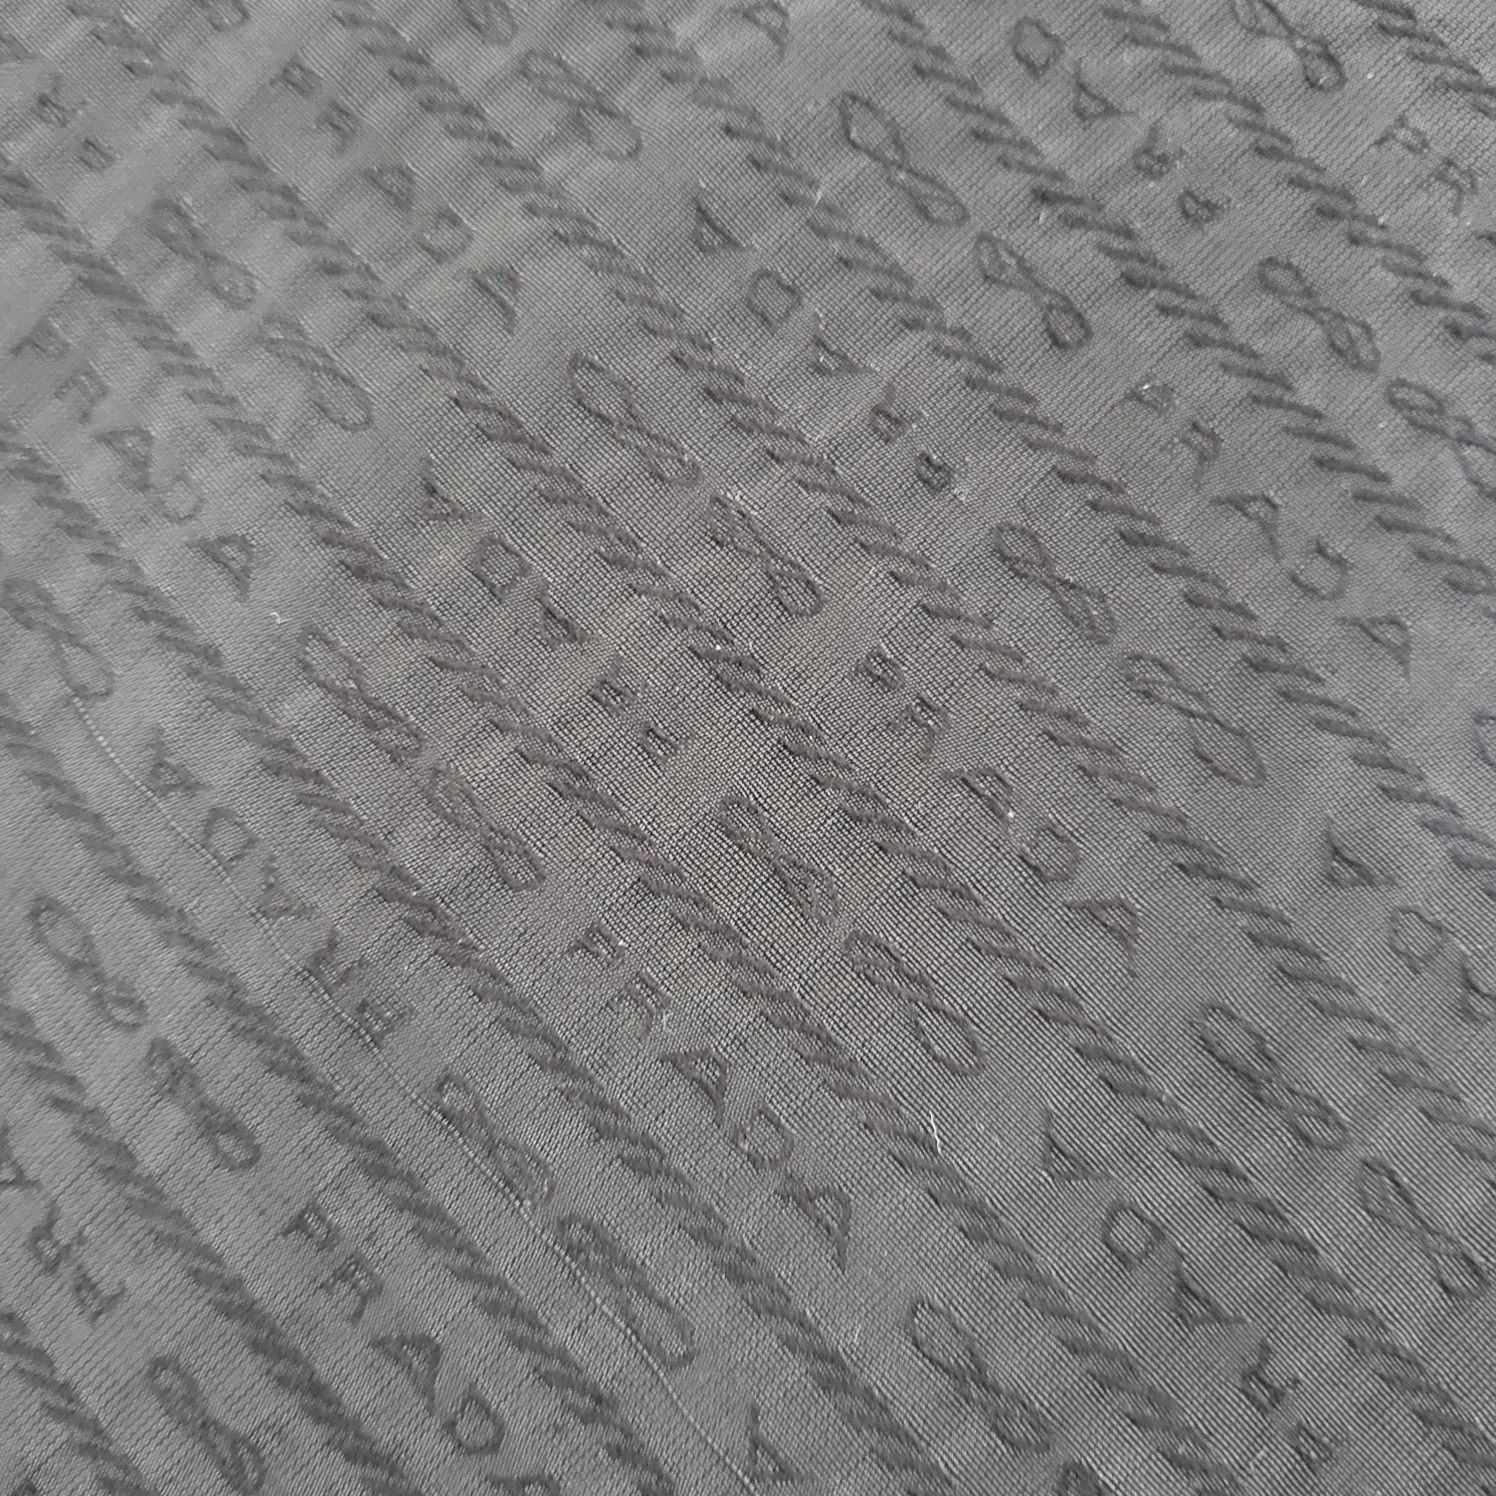 PRADA
PRADA
PRADA
PRADA
PRADA
PRADA
PRADA
PRADA
PRADA
PRADA
PRADA